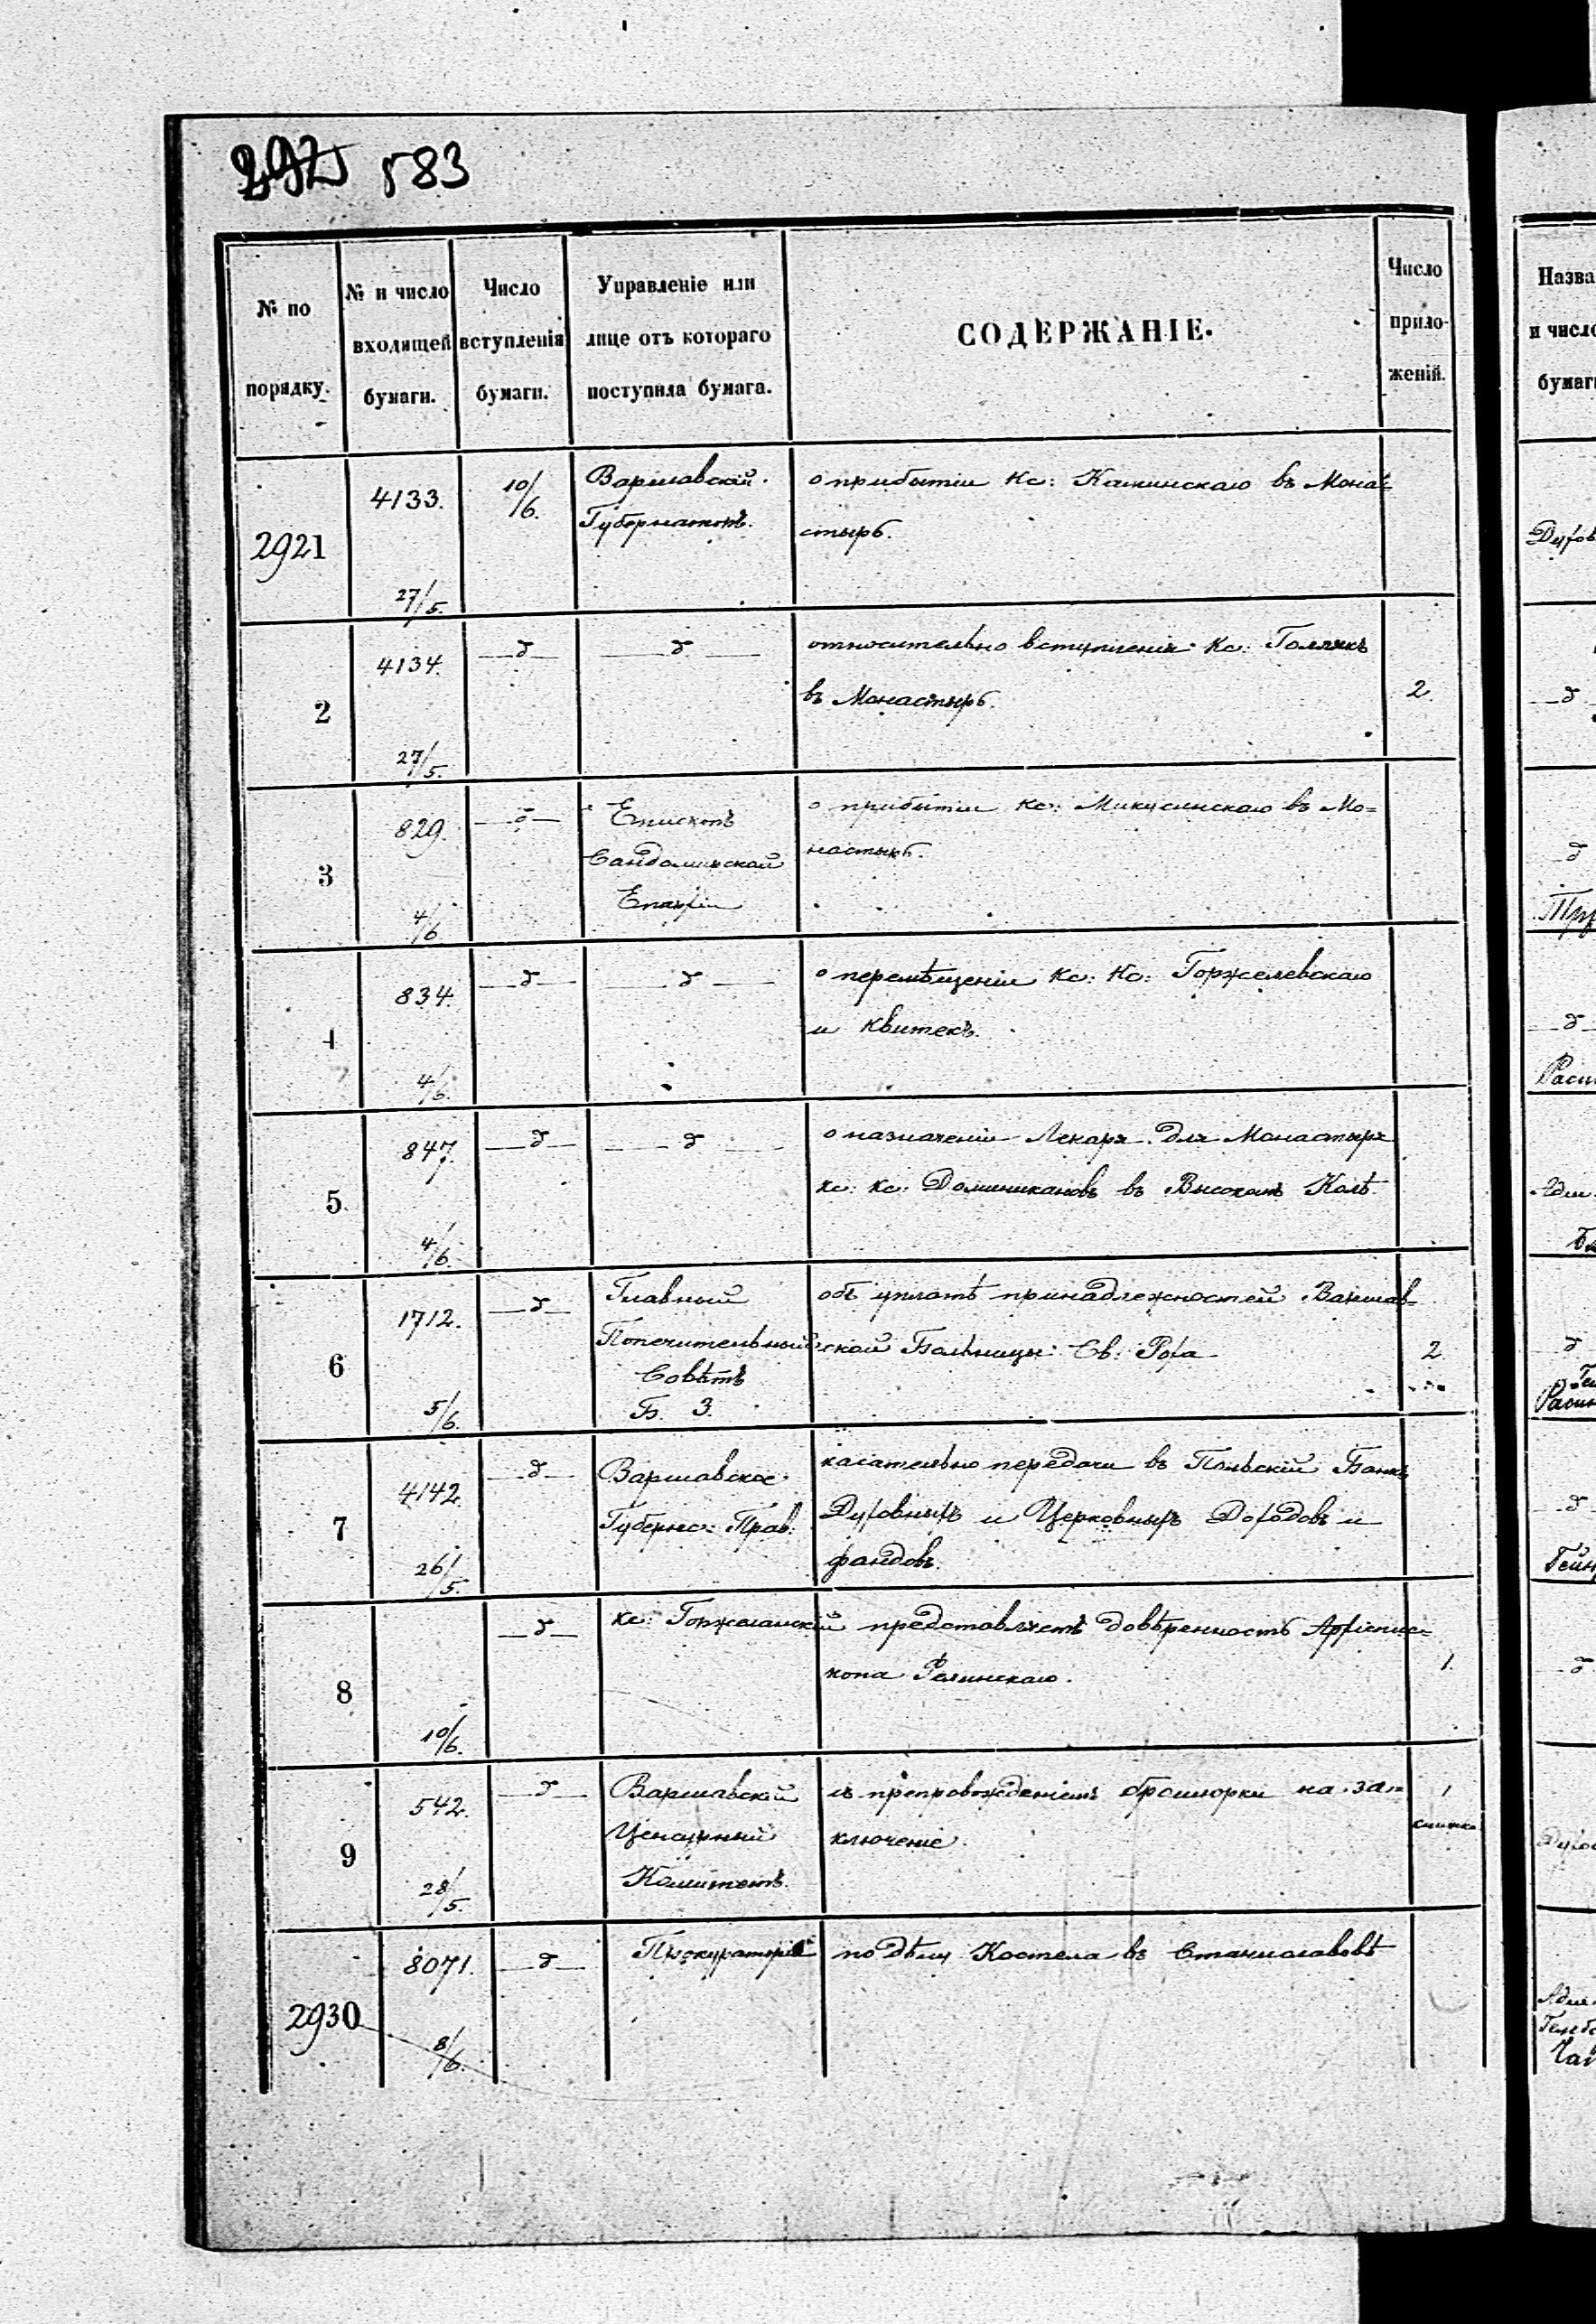 583
№ по порядку.
№ и число входящей бумаги.
Число вступленія бумаги.
Управленіе или лице отъ котораго поступила бумага.
СОДЕРЖАНІЕ.
Число приложеній.
2921
4133.
27/5.
10/6.
Варшавскій
Губернаторъ.
о прибытіи Кс: въ Мона=
стырь.
2
4134.
27/5.
д
д
относительно вступленія Кс:
въ Монастырь.
2
3
829.
4/6
д
Епископъ
Сандомирской
Епархіи
о прибытіи Кс: Микусинскаго въ Мо=
настырь.
4
834.
4/6.
д
д
о перемѣщеніи Кс: Кс: Горжелевскаго
и Квитекъ.
5
847.
4/6.
д
д
о назначеніи Лекаря для Монастыря
кс: кс: Доминикановъ въ Высокомъ Колѣ.
6
1712.
5/6.
д
Главный
Попечительный
Совѣтъ
Б. З.
объ уплатѣ принадлежностей Варшав-
ской Больницы Св: Роха
2.
7
4142.
26/5.
д
Варшавское
Губернс: Прав:
касательно передачи въ Польскій Банкъ
Духовныхъ и Церковныхъ Доходовъ и
фондовъ.
8
10/6.
д
кс:
представляетъ довѣренность Архіепис=
копа Фелинскаго.
1.
9
542.
28/5.
д
Варшавскій
Ценсурный
Комитетъ.
съ препровожденіемъ брошюрки на за=
ключеніе.
1
книжка
2930
8071.
8/6.
д
Прокураторія
по дѣлу Костела въ Станиславовѣ
Назва
и число
бумаги
Духов
д
д
д
д
д
д